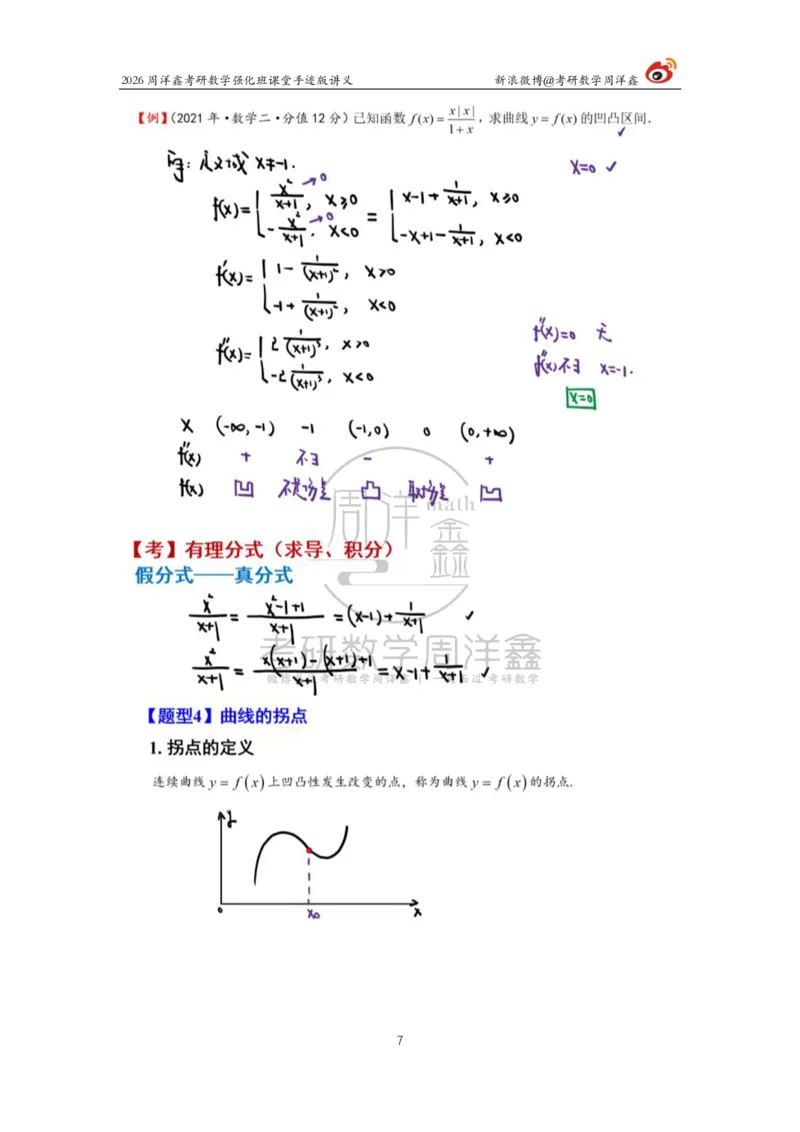 2026周洋鑫考研数学强化班课堂手迹版讲义 新浪微博@考研数学周洋鑫
【例】(2021年·数学二·分值12分)已知函数 f(x)= x|x| / 1+x ,求曲线 y = f(x) 的凹凸区间. ✓
解: 定义域 x≠-1. x=0 ✓
f(x)= { x²/(x+1), x≥0 →0 = { x-1+ 1/(x+1), x≥0
-x²/(x+1), x<0 →0 -x+1- 1/(x+1), x<0
f'(x)= { 1- 1/(x+1)², x>0
-1+ 1/(x+1)², x<0
f''(x)= { 2 1/(x+1)³, x>0 f''(x)=0 无
-2 1/(x+1)³, x<0 f''(x)不∃ x=-1.
x=0
x (-∞,-1) -1 (-1,0) 0 (0,+∞)
f''(x) + 不∃ - +
f(x) 凹 凸 凹
周洋鑫 math
【考】有理分式(求导、积分)
假分式——真分式
x²/(x+1) = (x²-1+1)/(x+1) = (x-1)+ 1/(x+1) ✓
考研数学周洋鑫
x²/(x+1) = (x(x+1)-(x+1)+1)/(x+1) = x-1+ 1/(x+1) ✓
【题型4】曲线的拐点
1. 拐点的定义
连续曲线 y = f(x) 上凹凸性发生改变的点，称为曲线 y = f(x) 的拐点.
y
0 x₀ x
7